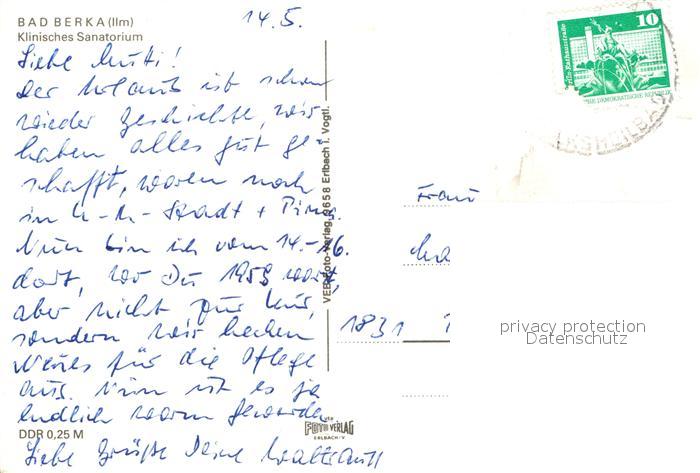 BAD BERKA (Ilm)
Klinisches Sanatorium
14.5.
Liebe Mutti!
der Urlaub ist schon
wieder Geschichte, wir
haben alles gut ge-
schafft, waren noch
in K-M-Stadt + Pirna.
Nun bin ich vom 14.-16.
dort, wo Du 1959 warst,
aber nicht zur Kur,
sondern wir hecken
Neues für die Pflege
aus. Nun ist es ja
endlich warm geworden
DDR 0,25 M
Liebe Grüße Deine Waltraut
VEB Foto-Verlag, 9658 Erlbach i. Vogtl.
FOTO VERLAG
ERLBACH/V
10
Berlin, Rathausstraße
DEMOKRATISCHE REPUBLIK
Frau
1831
privacy protection
Datenschutz